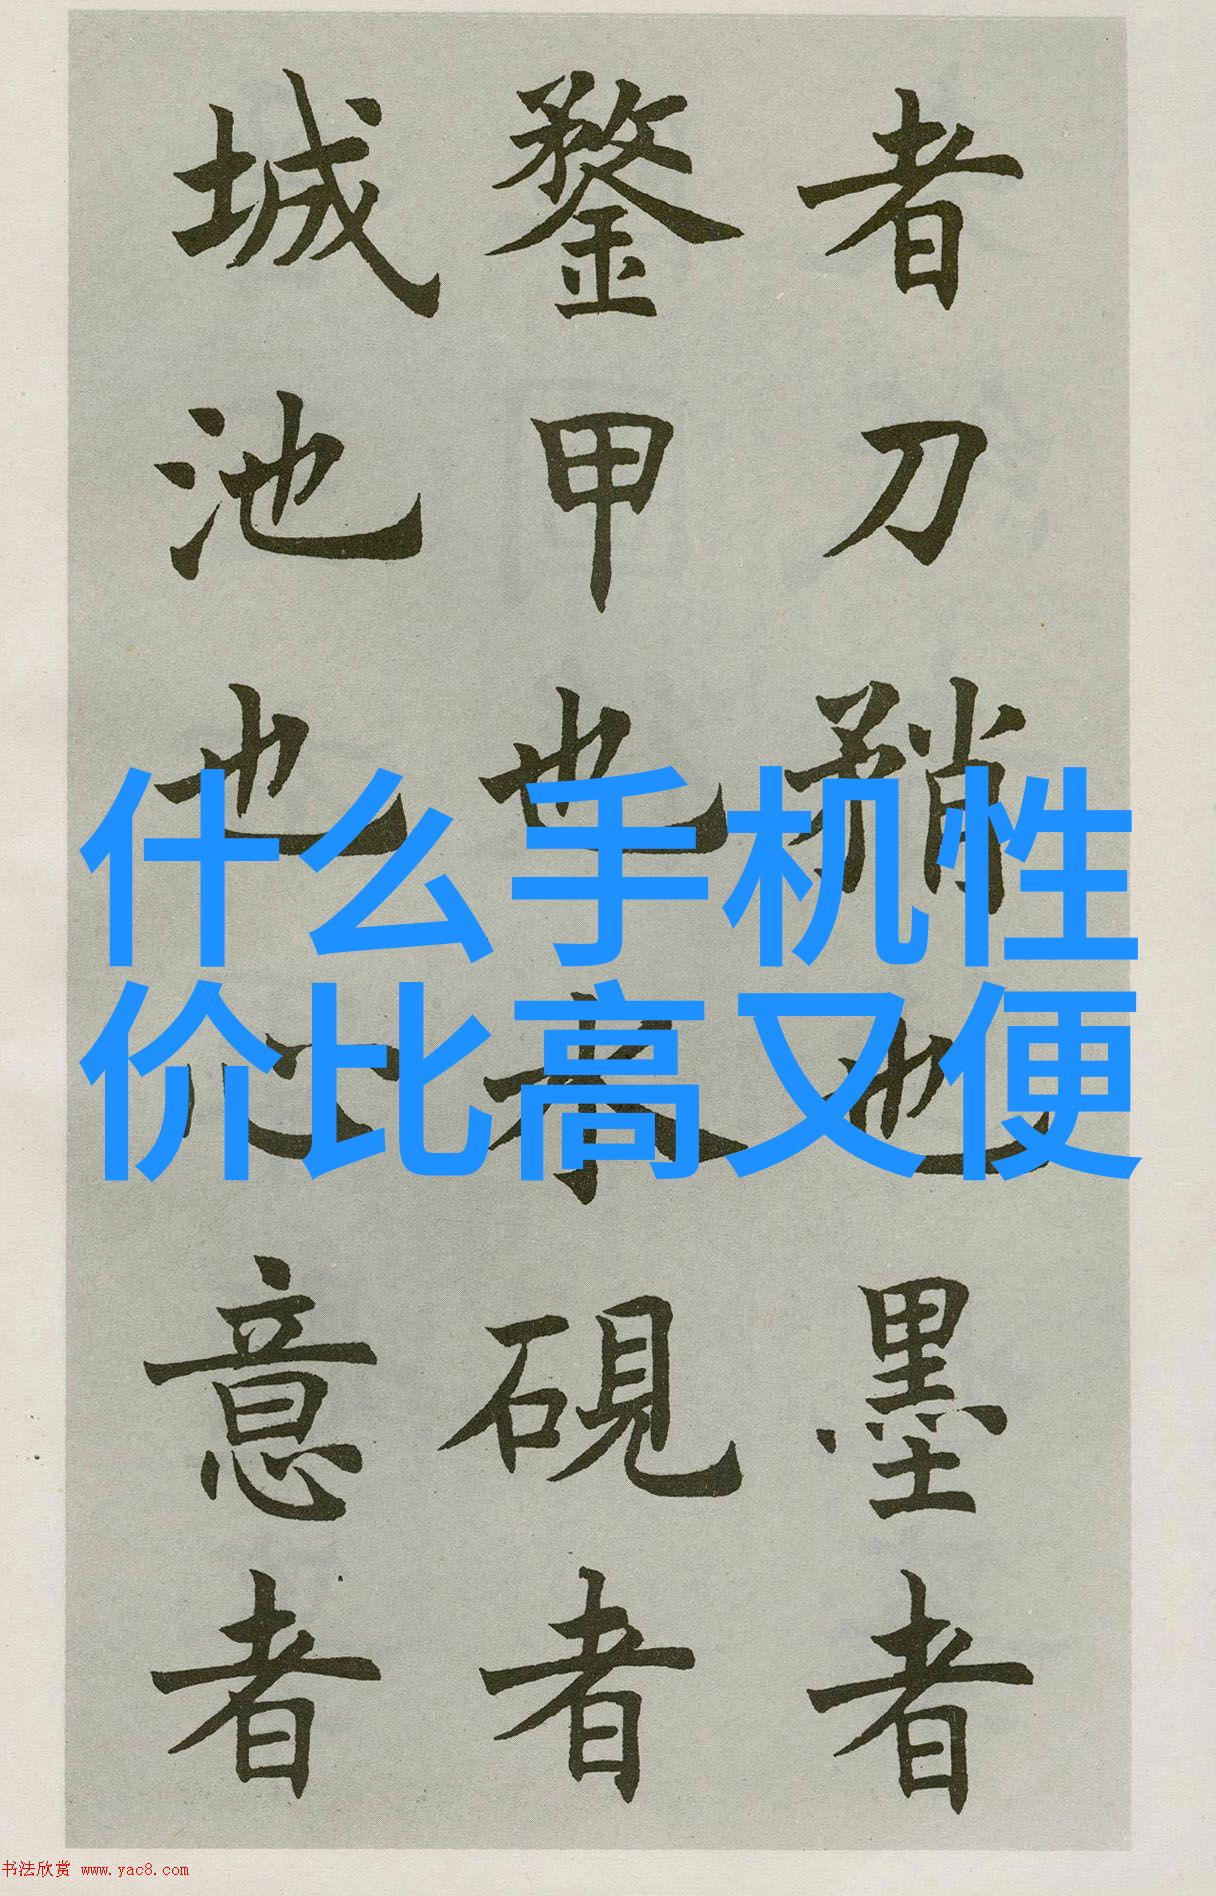 者刀矟也墨者
鍪甲也水硯者
城池也心意者
什么手机性
价比高又便
书法欣赏 www.yac8.com